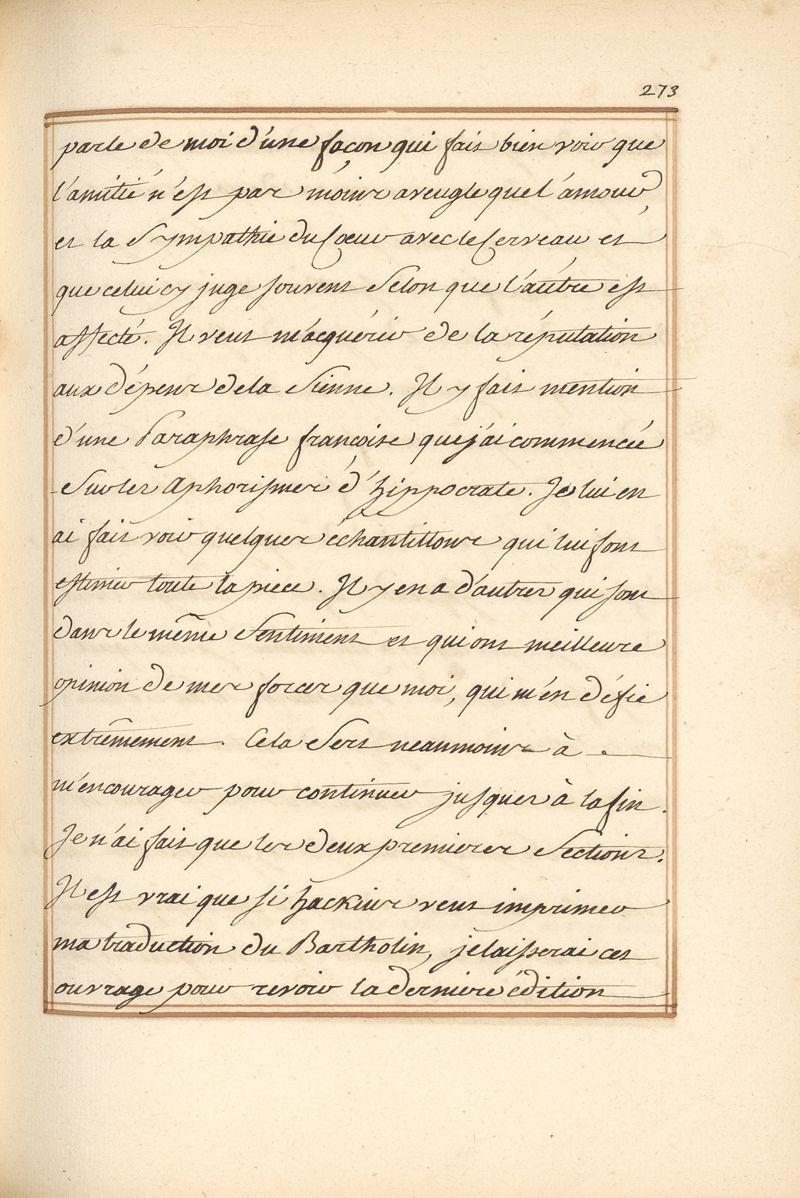 273
parle de moi d'une façon qui fait bien voir que
l'amitié n'est pas moins aveugle que l'amour,
et la Sympathie du Cœur avec le Cerveau et
que celui cy juge souvent Selon que l'autre est
affecté. Il veut m'acquérir de la réputation
aux dépens de la Sienne. Il y fait mention
d'une Paraphrase françoise que j'ai commencée
Sur les Aphorismes d'hippocrate. Je lui en
ai fait voir quelques échantillons qui lui font
estimer toute la piece. Il y en a d'autres qui sont
dans le même Sentiment et qui ont meilleure
opinion de mes forces que moi, qui m'en défie
extrêmement. Cela Sert neanmoins à
m'encourager pour continuer jusques à la fin.
Je n'ai fait que les deux premieres Sections.
Il est vrai que si hackius veut imprimer
ma traduction du Bartholin, je laisserai cet
ouvrage pour revoir la derniere édition